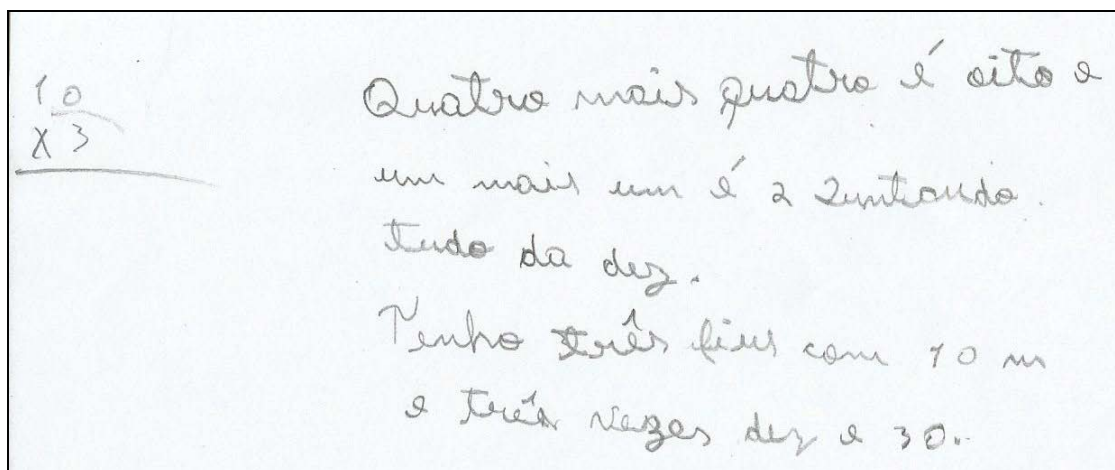 10
X 3
Quatro mais quatro é oito e
um mais um é 2 Juntando.
tudo da dez.
Tenho três fius com 10 m
e três vezes dez e 30.